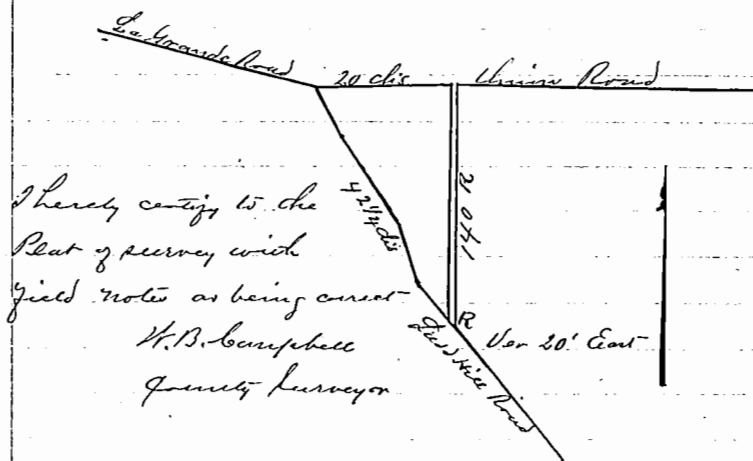 La Grande Road
20 chs Union Road
42 1/4 chs
I hereby certify to the
Plat of survey with
field notes as being correct
W.B. Campbell
County Surveyor
R
Hill Road
Ver 20' East